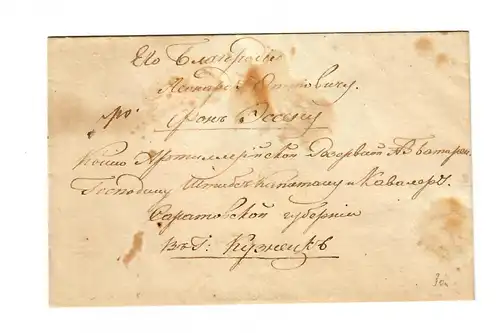 Его Благородію
Оттовичу.
pr.
фонъ Эссену
Конно Артиллерійской Батареи
Господину Штабсъ Капитану и Кавалеру.
Саратовской губерніи
Въ Г: Кузнецкъ